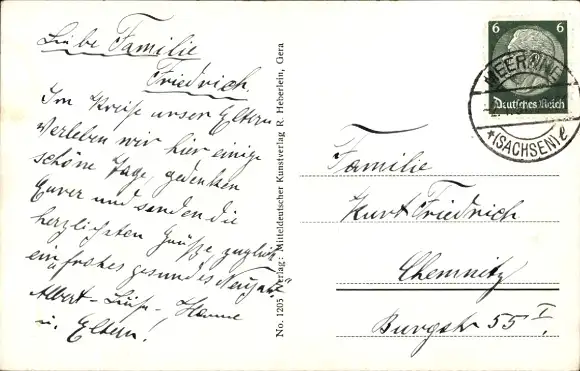 Liebe Familie
Friedrich.
Im Kreise unser Eltern
verleben wir hier einige
schöne Tage, gedenken
Eurer und senden die
herzlichsten Grüße zugleich
ein "frohes gesundes Neujahr"
Albert - Luise -, Hanne
u. Eltern!
No. 1205 Verlag: Mitteldeutscher Kunstverlag R. Heberlein, Gera
6 6
Deutsches Reich
MEERANE
*(SACHSEN) e
Familie
Kurt Friedrich
Chemnitz
Burgstr 55 I.